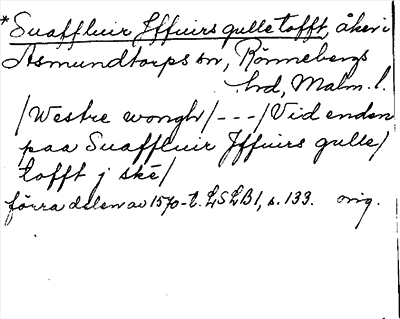 *Suaffluir Jffuirs gulle tofft, åker i
Asmundtorps sn, Rönnebergs
hrd, Malm. l.
/Westre wongh/---/Vid enden
paa Suaffluir Jffuirs gulle/
tofft j ske/
förra delen av 1570-t. LSLB1, s. 133. orig.